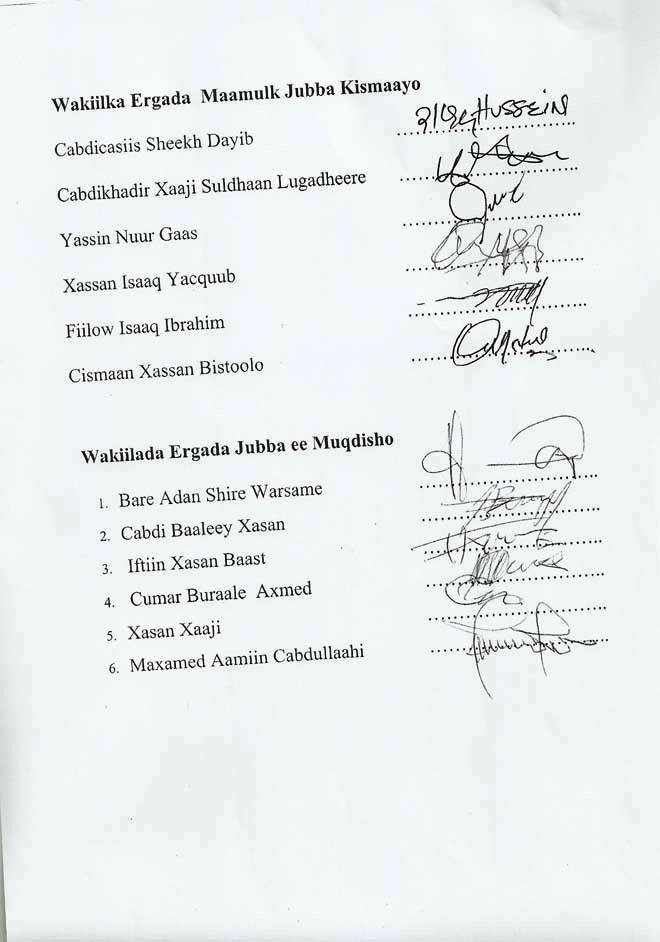 Wakiilka Ergada Maamulk Jubba Kismaayo
HUSSEIN
Cabdicasiis Sheekh Dayib
Cabdikhadir Xaaji Suldhaan Lugadheere
Yassin Nuur Gaas
Xassan Isaaq Yacquub
Fiilow Isaaq Ibrahim
Cismaan Xassan Bistoolo
Wakiilada Ergada Jubba ee Muqdisho
1. Bare Adan Shire Warsame
2. Cabdi Baaleey Xasan
3. Iftiin Xasan Baast
4. Cumar Buraale Axmed
5. Xasan Xaaji
6. Maxamed Aamiin Cabdullaahi